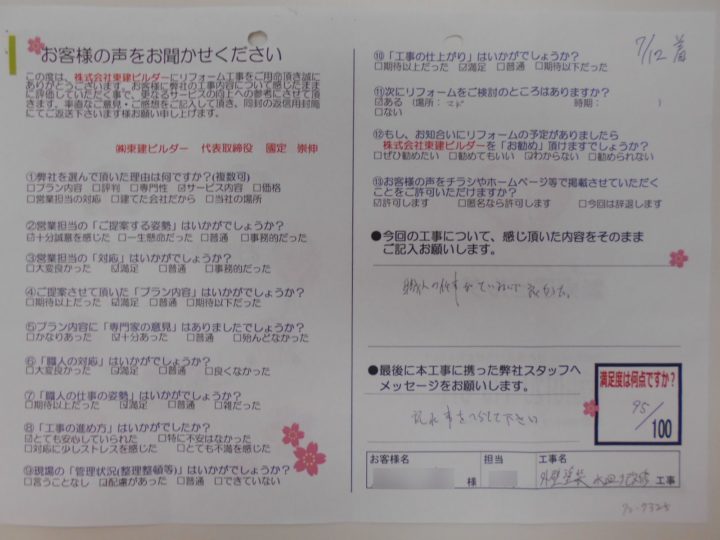 お客様の声をお聞かせください
この度は、株式会社東建ビルダーにリフォーム工事をご用命頂き誠に
ありがとうございます。お客様に弊社の工事内容について感じたままに
ご評価していただく事で、更なるサービスの向上への参考にさせて頂
きます。率直なご意見・ご感想をご記入して頂き、同封の返信用封筒
にてご返送下さいます様お願い申し上げます。
㈱東建ビルダー 代表取締役 國定 崇伸
①弊社を選んで頂いた理由は何ですか?(複数可)
□プラン内容 □評判 □専門性 ☑サービス内容 □価格
□営業担当の対応 □建てた会社だから □当社の場所
②営業担当の「ご提案する姿勢」はいかがでしょうか?
☑十分誠意を感じた □一生懸命だった □普通 □事務的だった
③営業担当の「対応」はいかがでしょうか?
□大変良かった ☑満足 □普通 □事務的だった
④ご提案させて頂いた「プラン内容」はいかがでしょうか?
□期待以上だった ☑満足 □普通 □期待以下だった
⑤プラン内容に「専門家の意見」はありましたでしょうか?
□かなりあった ☑十分あった □普通 □殆んどなかった
⑥「職人の対応」はいかがでしょうか?
□大変良かった ☑満足 □普通 □良くなかった
⑦「職人の仕事の姿勢」はいかがでしょうか?
□期待以上だった ☑満足 □普通 □雑だった
⑧「工事の進め方」はいかがでしたか?
☑とても安心していられた □特に不安はなかった
□対応に少しストレスを感じた □とても不満を感じた
⑨現場の「管理状況(整理整頓等)」はいかがでしょうか?
□言うことなし ☑配慮があった □普通 □できていない
7/12 着
⑩「工事の仕上がり」はいかがでしょうか?
□期待以上だった ☑満足 □普通 □期待以下だった
⑪次にリフォームをご検討のところはありますか?
☑ある (場所: マド 時期: )
□ない
⑫もし、お知合いにリフォームの予定がありましたら
株式会社東建ビルダーを「お勧め」頂けますでしょうか?
□ぜひ勧めたい □勧めてもいい ☑わからない □勧められない
⑬お客様の声をチラシやホームページ等で掲載させていただく
ことをご許可いただけますか?
☑許可します □匿名なら許可します □今回は辞退します
●今回の工事について、感じ頂いた内容をそのまま
ご記入お願いします。
職人の仕事がていねいで良かった。
●最後に本工事に携った弊社スタッフへ
メッセージをお願いします。
満足度は何点ですか?
95/100
お客様名 担当 工事名
様 外壁塗装 水回り改修 工事